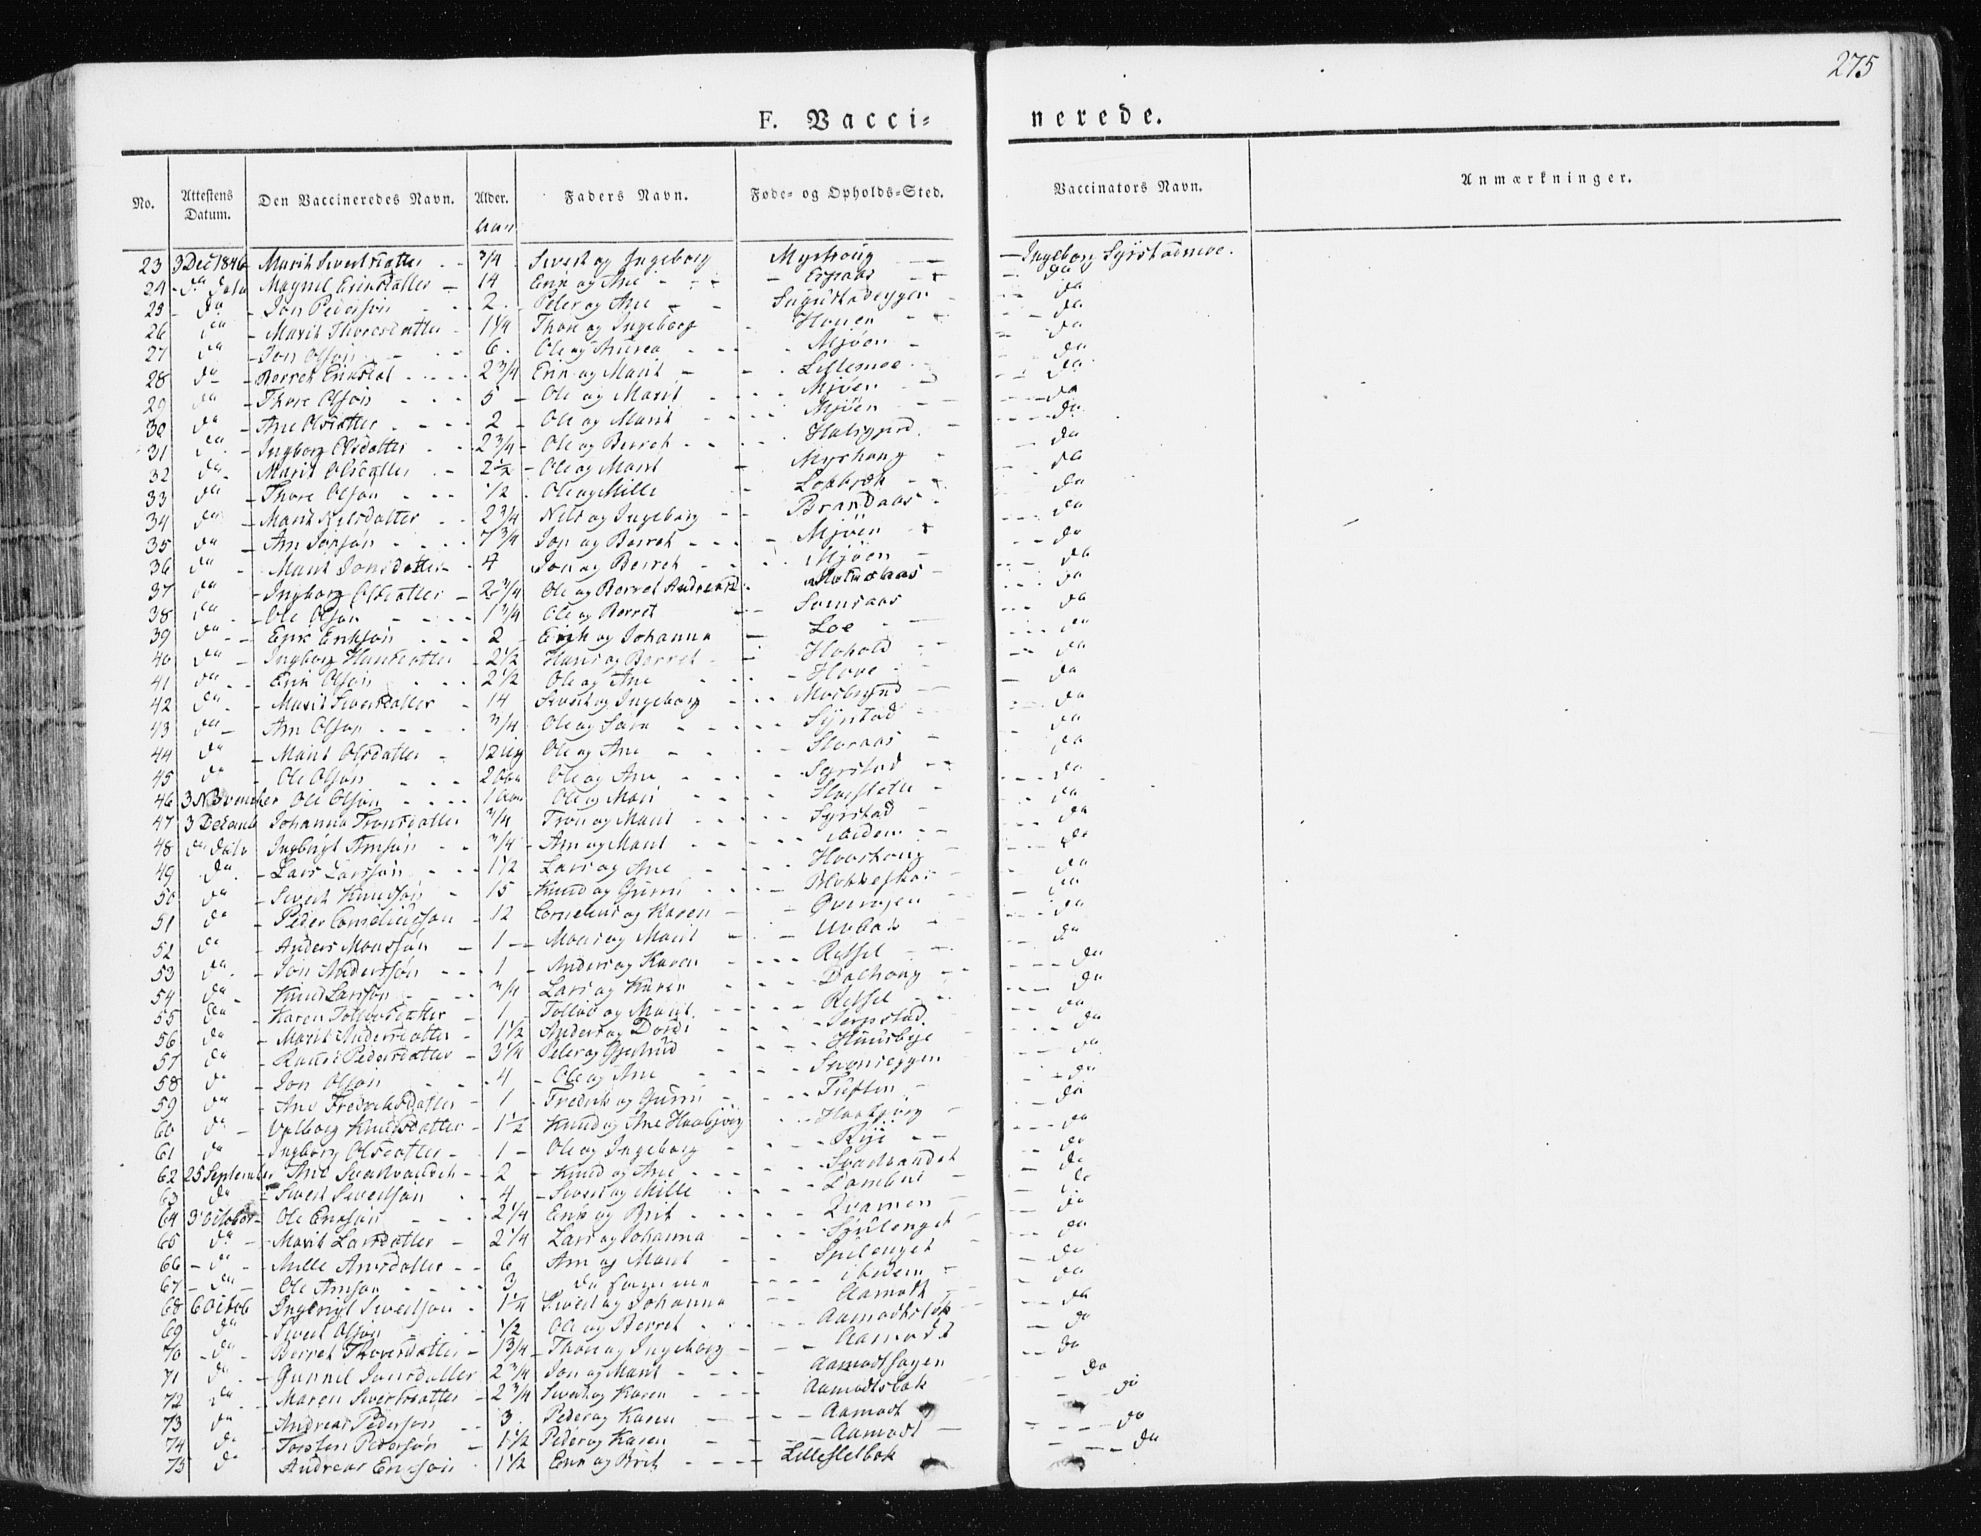 275
F. Vacci=
nerede.
No. Attestens Datum. Den Vaccineredes Navn. Alder. Faders Navn. Føde- og Opholds-Sted. Vaccinators Navn. Anmærkninger.
Aar
23 3 Dec 1846 Marit Sivertsdatter 3/4 Sivert og Ingeborg Myrhoug Ingeborg Syrstadmoe.
24 da dato Magnil Eriksdatter 14 Erik og Ane da
25 da Jon Pedersøn 2 Peter og Ane da
26 da Marit Thoresdatter 1 1/4 Thore og Ingeborg Houen da
27 da Jon Olsøn 6 Ole og Mjøen da
28 da Berret Eriksdat 2 3/4 Erik og Marit Lillemoe da
29 da Thore Olsøn 5 Ole og Marit Mjøen da
30 da Ane Olsdatter 2 Ole og Marit Mjøen da
31 da Ingborg Olsdatter 2 3/4 Ole og Berret da
32 da Marit Olsdatter 2 1/2 Ole og Marit Myrhoug da
33 da Thore Olsøn 1/2 Ole og Mille da
34 da Marit Nelsdatter 2 3/4 Nels og Ingeborg Brandaas da
35 da Arn Jonsøn 7 3/4 Jon og Berret Mjøen da
36 da Marit Jonsdatter 4 Jon og Berret Mjøen da
37 da Ingborg Olsdatter 2 3/4 Ole og Berret da
38 da Ole Olsøn 1 3/4 Ole og Berret da
39 da Erik Eriksøn 2 Erik og Johanna Loe da
40 da Ingborg Hansdatter 2 1/2 Hans og Berret da
41 da Erik Olsøn 2 1/2 Ole og Ane Hove da
42 da Marit Sivertsdatter 14 Sivert og Ingeborg da
43 da Arn Olsøn 3/4 Ole og Sara Syrstad da
44 da Marit Olsdatter 12 Ole og Ane Storaas da
45 da Ole Olsøn Ole og Ane Syrstad da
46 3 November Ole Olsøn Ole og Mari da
47 3 Decemb Johanna Tronsdatter 3/4 Tron og Marit Syrstad da
48 da dato Ingbrigt Arnsøn 3/4 Arn og Marit ibidem da
49 da Lars Larsøn 1 1/2 Lars og Ane Hovshoug da
50 da Sivert Knudsøn 15 Knud og Gurni da
51 da Peder Corneliussøn 12 Cornelius og Karen da
52 da Anders Monssøn 1 Mons og Marit da
53 da Jon Anderssøn 1 Anders og Karen Ressel da
54 da Knud Larssøn 3/4 Lars og Karen Dalhoug da
55 da Karen Tollevsdatter 1 Tollev og Marit Ressel da
56 da Marit Andersdatter 1 1/2 Anders og Dordi Jerpstad da
57 da Pedersdatter 3 1/4 Peter og Gjertrud Huusbye da
58 da Jon Olsøn 4 Ole og Ane da
59 da Ane Frederiksdatter 1 Frederik og Gurni Tuften da
60 da Valborg Knudsdatter 1 1/2 Knud og Ane Haabjørg Haabjørg da
61 da Ingborg Olsdatter 1 Ole og Ingeborg da
62 25 September Ane 2 Knud og Ane da
63 da Sivert Sivertsøn 4 Sivert og Mille da
64 3 October Ole Eriksøn 2 1/4 Erik og Brit Qvamen da
65 da Marit Larsdatter 2 1/4 Lars og Johanna da
66 da Mille Arnsdatter 6 Arn og Marit da
67 da Ole Arnsøn 3 da samme ibidem da
68 6 Octob Ingbrigt Sivertsøn 1 1/4 Sivert og Johanna Aamodt da
69 da Sivert Olsøn 1/2 Ole og Berret da
70 da Berret Thoresdatter 1 3/4 Thore og Ingeborg Aamodt da
71 da Gunnil Jonsdatter 2 3/4 Jon og Marit Aamodthagen da
72 da Maren Sivertsdatter 2 3/4 Sivert og Karen Aamodtsbak da
73 da Andreas Pedersøn 3 Peder og Karen Aamodt da
74 da Torsten Pedersøn 1 1/2 Peder og Karen Aamodt da
75 da Andreas Eriksøn 1 1/2 Erik og Brit